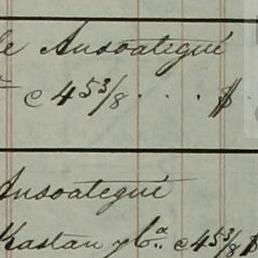 le Ansoategui
c 45 3/8 . . . $
Ansoategui
Kastan y Ca. c 45 3/8 $